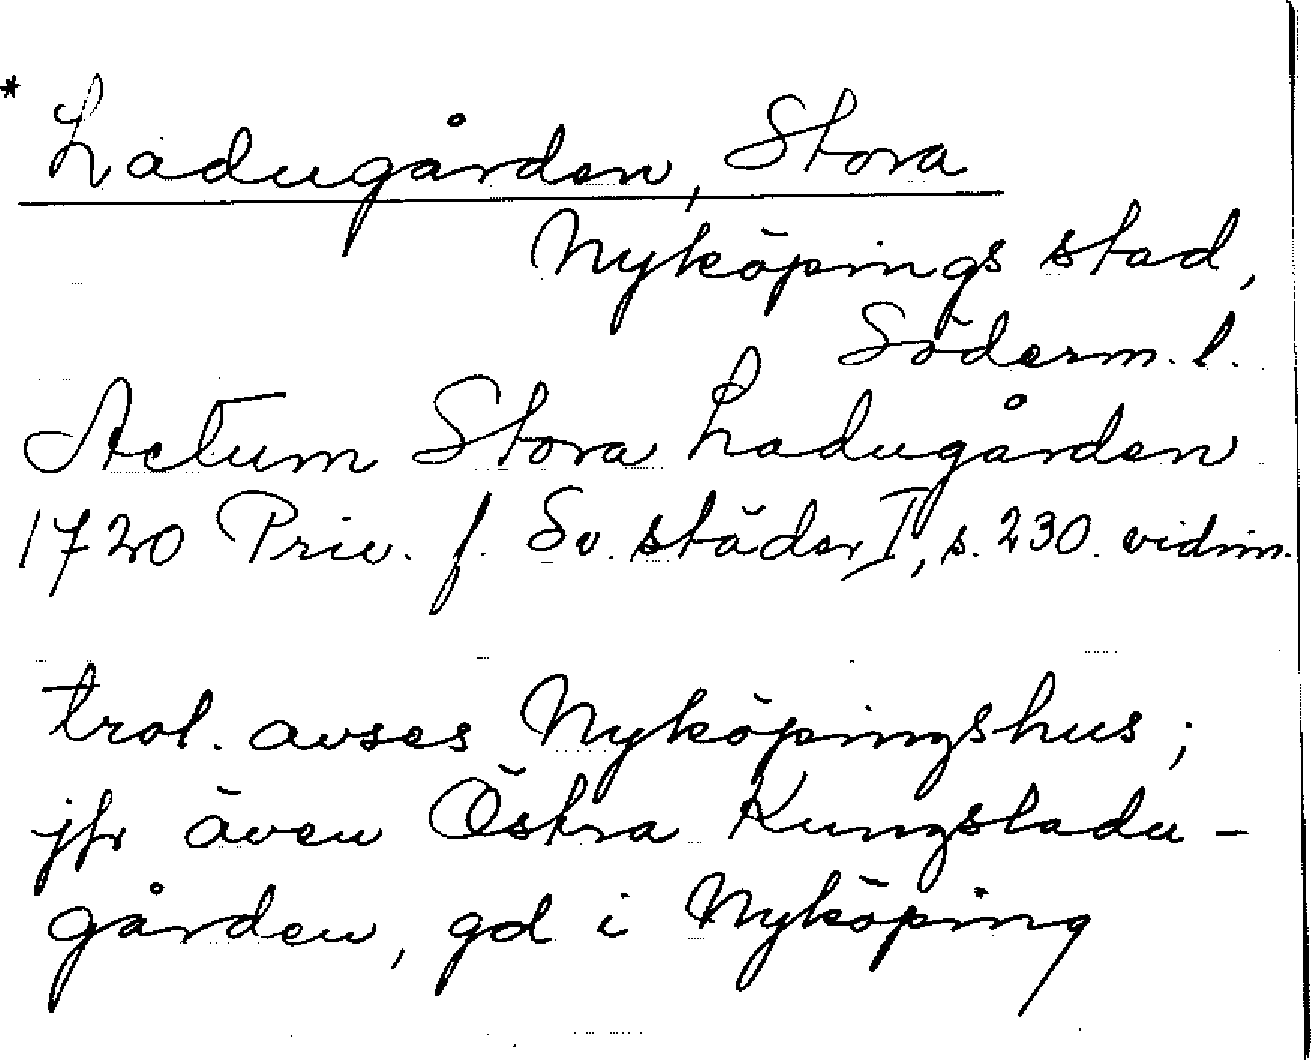 * Ladugården, Stora
Nyköpings stad,
Söderm. l.
Actum Stora Ladugården
1720 Priv. f. Sv. städer I, s. 230. vidim.
trol. avses Nyköpingshus;
jfr även Östra Kungsladu-
gården, gd i Nyköping